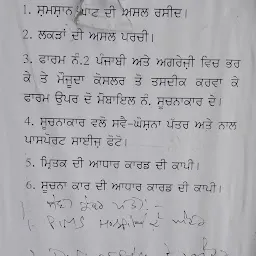 1. ਸ਼ਮਸ਼ਾਨ ਘਾਟ ਦੀ ਅਸਲ ਰਸੀਦ।
2. ਲਕੜਾਂ ਦੀ ਅਸਲ ਪਰਚੀ।
3. ਫਾਰਮ ਨੰ.2 ਪੰਜਾਬੀ ਅਤੇ ਅਗਰੇਜ਼ੀ ਵਿਚ ਭਰ
ਕੇ ਤੇ ਮੌਜੂਦਾ ਕੌਸਲਰ ਤੋ ਤਸਦੀਕ ਕਰਵਾ ਕੇ
ਫਾਰਮ ਉਪਰ ਦੋ ਮੋਬਾਇਲ ਨੰ. ਸੂਚਨਾਕਾਰ ਦੇ।
4. ਸੂਚਨਾਕਾਰ ਵਲੋ ਸਵੈ-ਘੋਸ਼ਨਾ ਪੱਤਰ ਅਤੇ ਨਾਲ
ਪਾਸਪੋਰਟ ਸਾਈਜ਼ ਫੋਟੋ।
5. ਮ੍ਰਿਤਕ ਦੀ ਆਧਾਰ ਕਾਰਡ ਦੀ ਕਾਪੀ।
6. ਸੂਚਨਾ ਕਾਰ ਦੀ ਆਧਾਰ ਕਾਰਡ ਦੀ ਕਾਪੀ।
1. PIMS